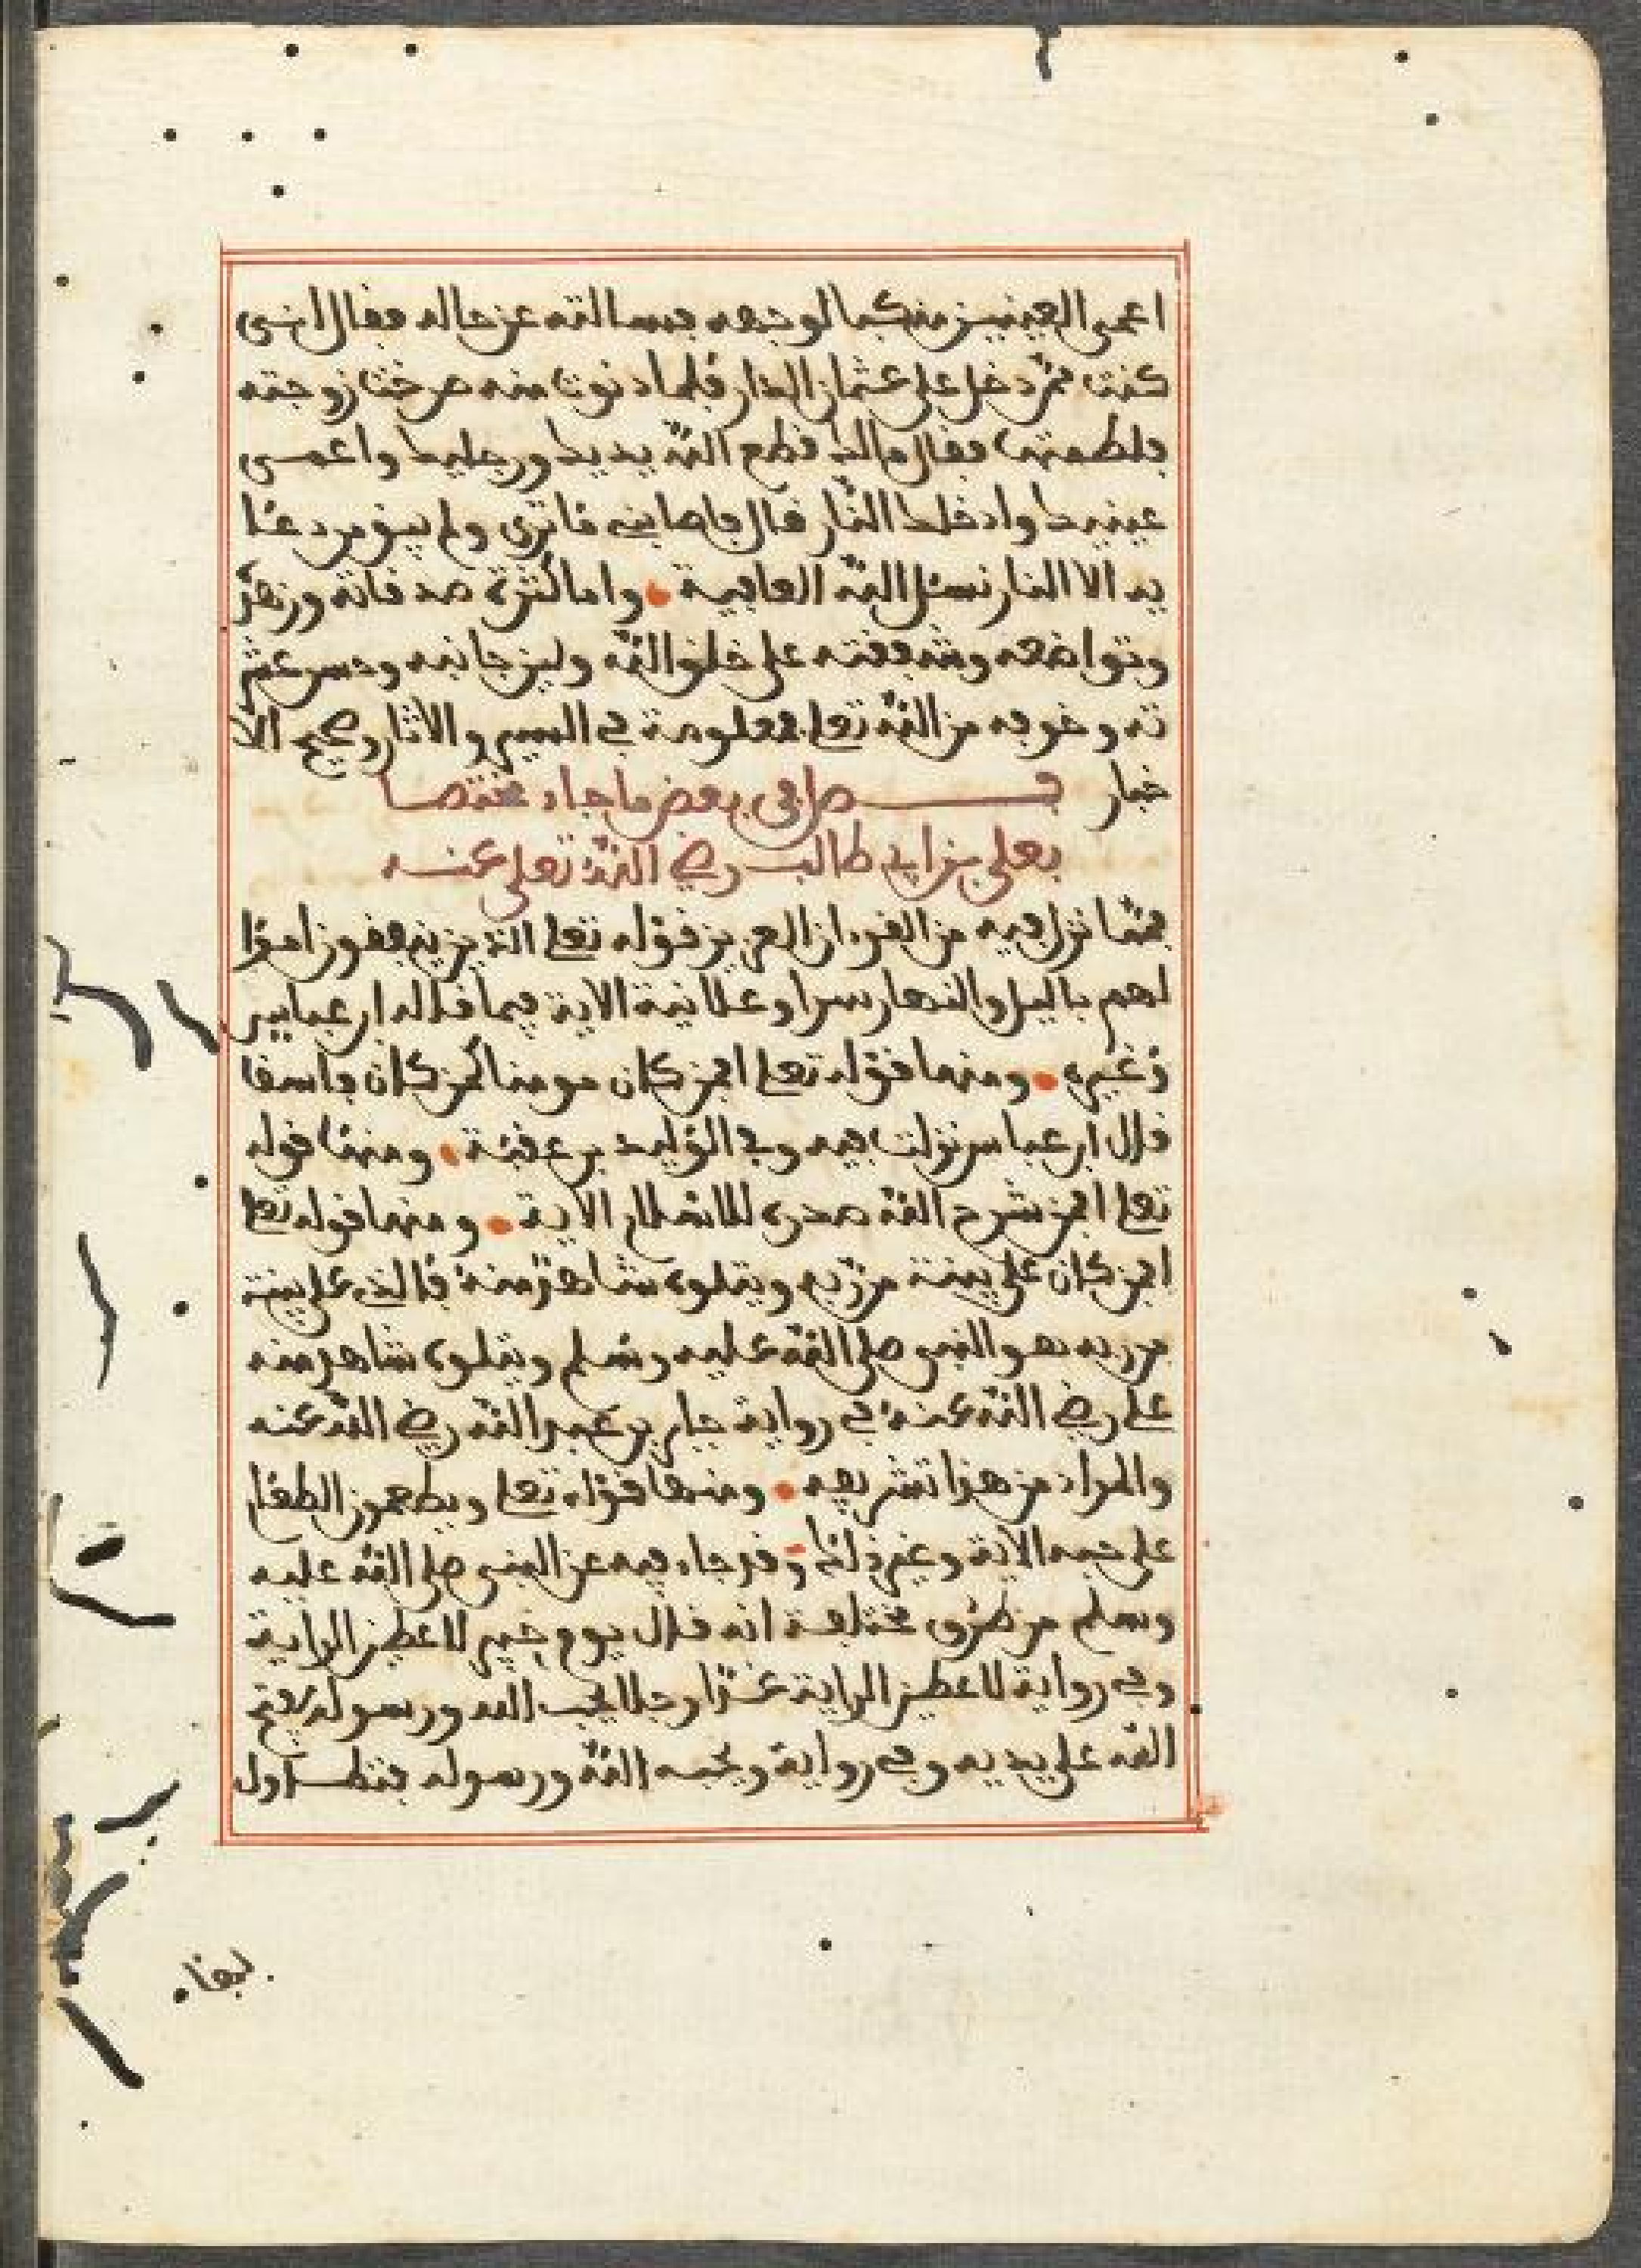 اعمى العينين منكبا لوجهه فسالته عن حاله فقال انى
كنت ممن دخل على عثمان الدار فلما دنوت منه صرخت زوجته
فلطمتها فقال مالك قطع الله يديك ورجليك واعمى
عينيك وادخلك النار قال فاصابنى ما ترى ولم يبق من دعا
يه الا النار نسئل الله العافية • واما كثرة صدقاته وزهد
وتواضعه وشفقته على خلق الله ولين جانبه وحسن عشر
ته وخوفه من الله تعلى فمعلومة في السير والاثار وصحيح الا
خبار فصل في بعض ما جاء مختصا
بعلي بن ابي طالب رضي الله تعلى عنه
فمما نزل فيه من القرءان العزيز قوله تعلى الذين ينفقون اموا
لهم باليل والنهار سرا وعلانية الاية فيما قاله ابن عباس
وغيره • ومنها قوله تعلى افمن كان مومنا كمن كان فاسقا
قال ابن عباس نزلت فيه وفي الوليد بن عقبة • ومنها قوله
تعلى افمن شرح الله صدره للاسلام الاية • ومنها قوله تعلى
افمن كان على بينة من ربه ويتلوه شاهد منه فالذي على بينة
من ربه هو النبي صلى الله عليه وسلم ويتلوه شاهد منه
علي رضي الله عنه في رواية جابر بن عبد الله رضي الله عنه
والمراد من هذا تشريفه • ومنها قوله تعلى ويطعمون الطعام
على حبه الاية وغير ذلك • وقد جاء فيه عن النبي صلى الله عليه
وسلم من طرق مختلفة انه قال يوم خيبر لاعطين الراية
وفي رواية لاعطين الراية غدا رجلا يحب الله ورسوله يفتح
الله على يديه وفي رواية ويحبه الله ورسوله فتطاول
لها